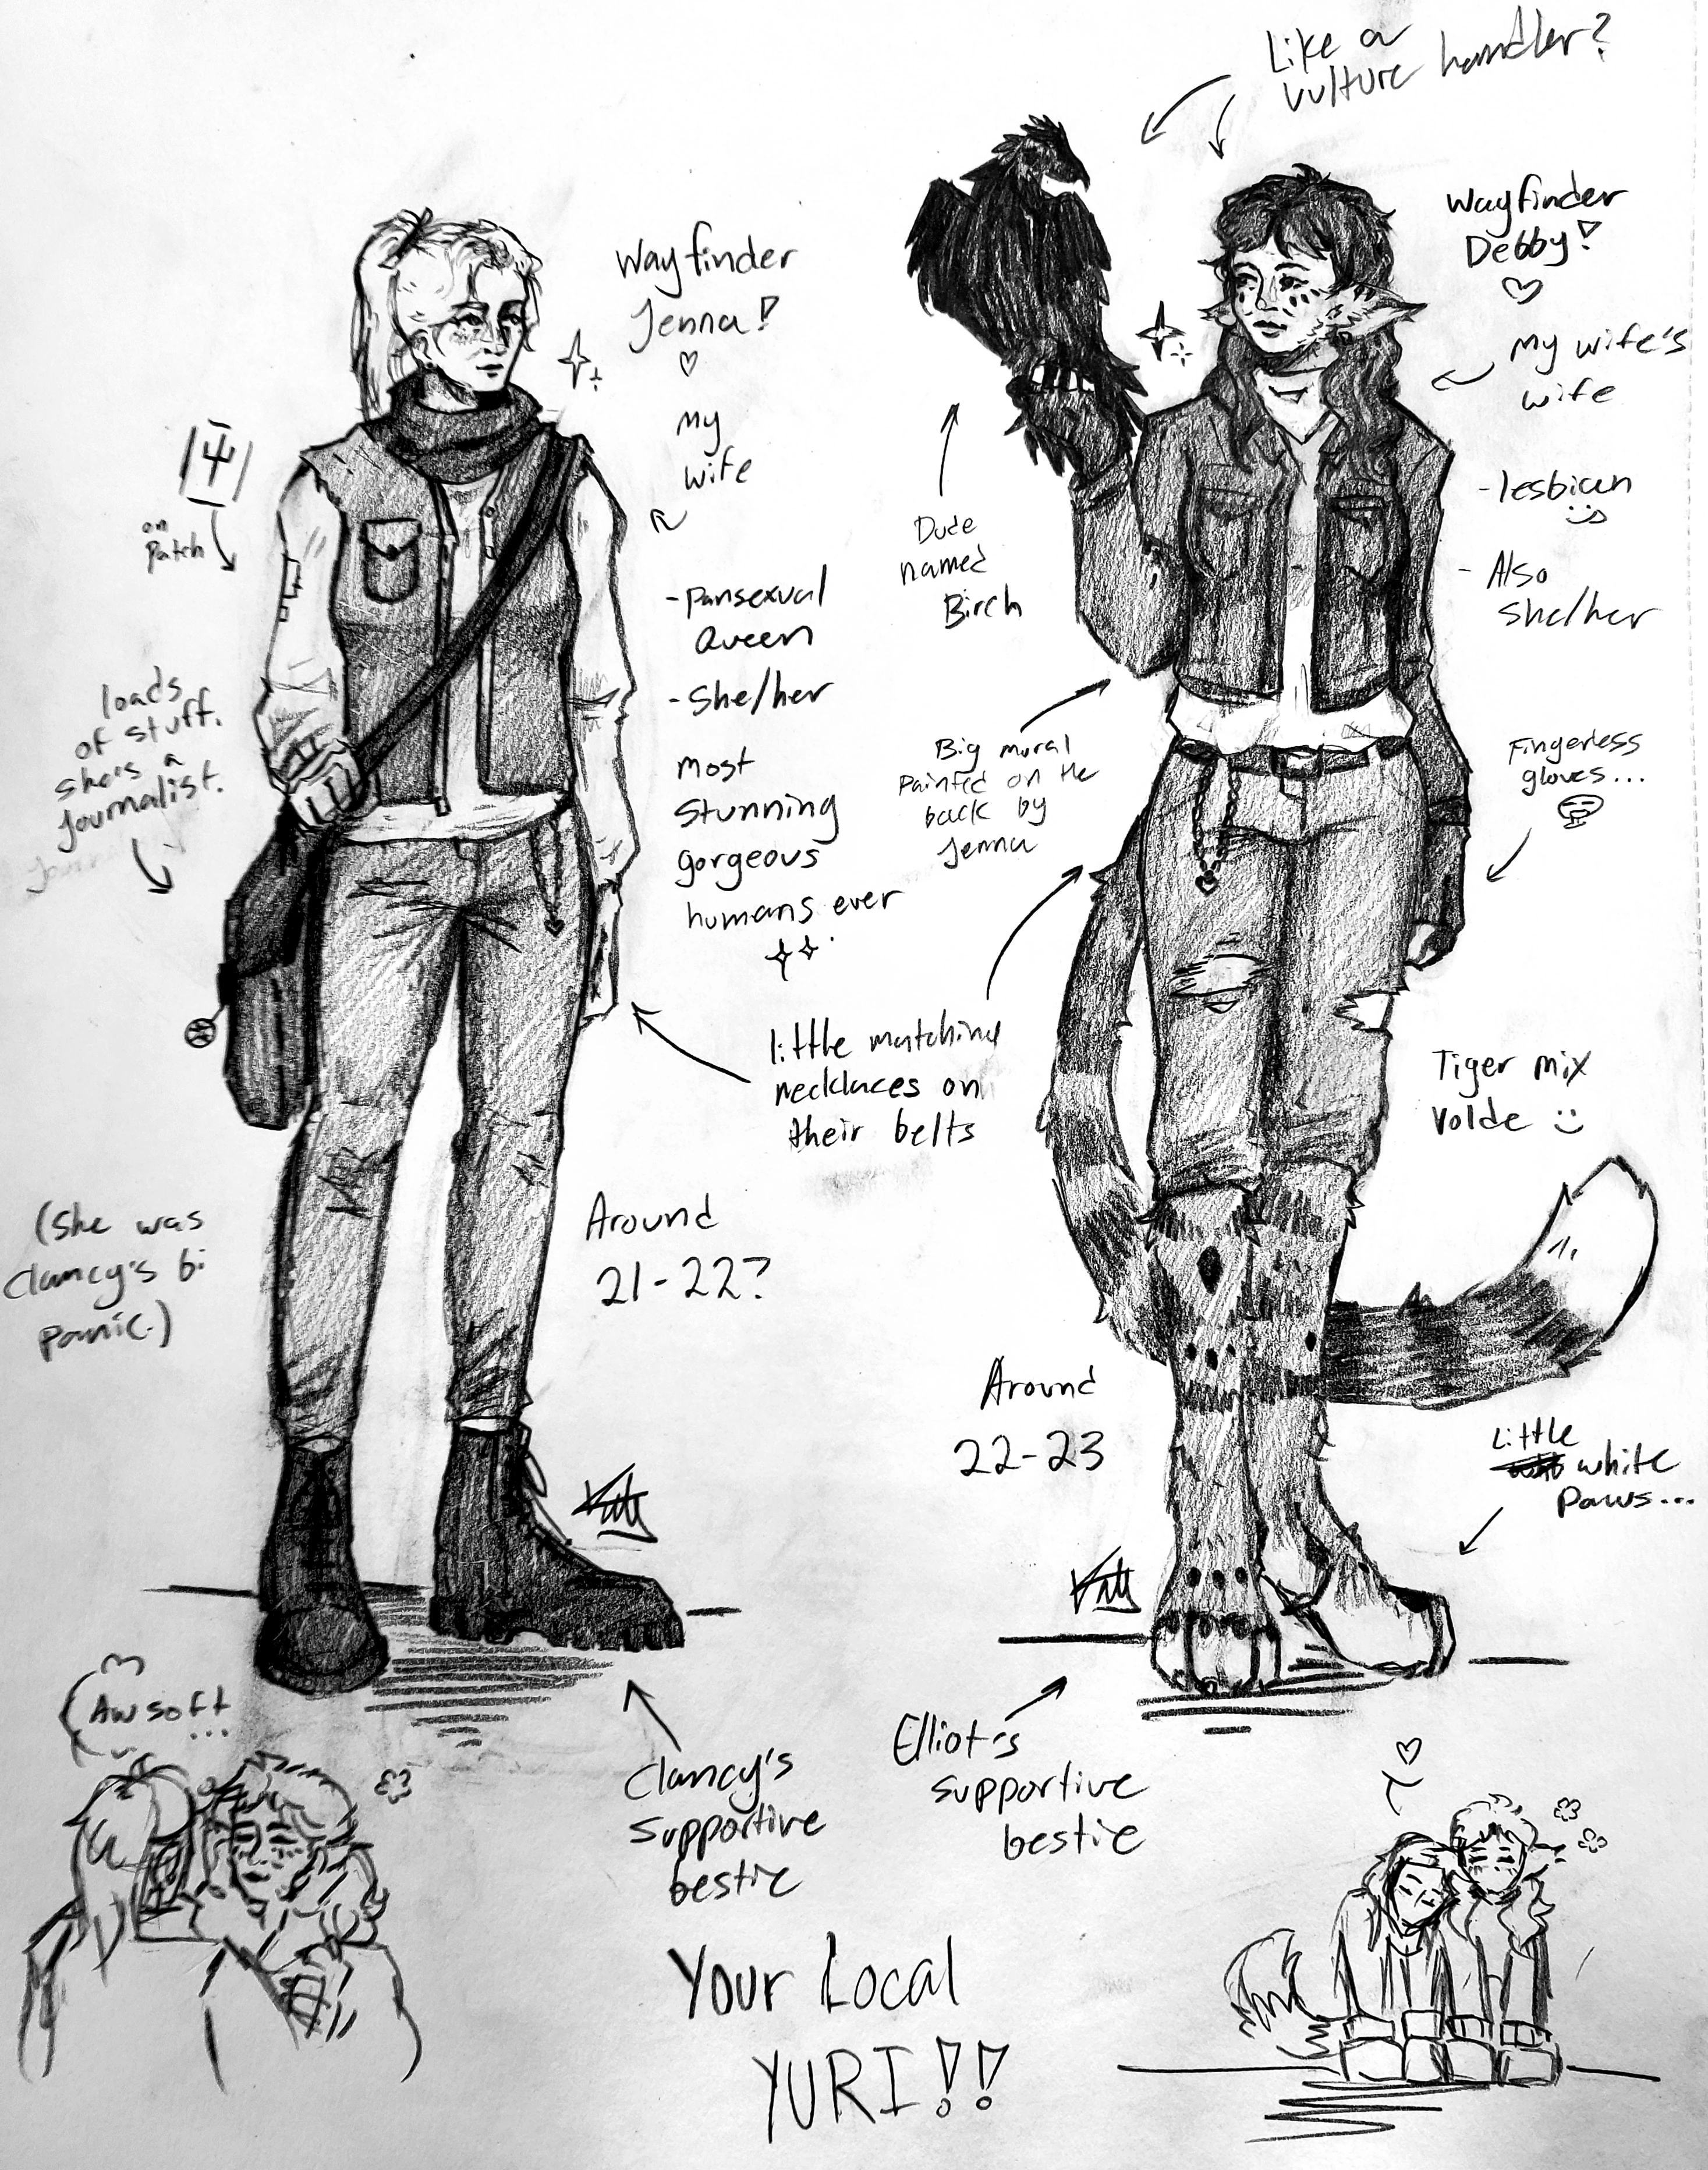 Like a
vulture handler?
Wayfinder
Jenna!
my
wife
on
patch
loads
of stuff.
she's a
journalist.
-pansexual
queen
-she/her
most
stunning
gorgeous
humans ever
(She was
Clancy's bi
panic.)
Around
21-22?
Clancy's
supportive
bestie
Aw soft
...
little matching
necklaces on
their belts
Wayfinder
Debby!
my wife's
wife
-lesbian
- Also
she/her
Dude
named
Birch
Big mural
painted on the
back by
Jenna
Fingerless
gloves...
Tiger mix
Volde
Around
22-23
Little
white
paws...
Elliot's
supportive
bestie
Your Local
YURI!!